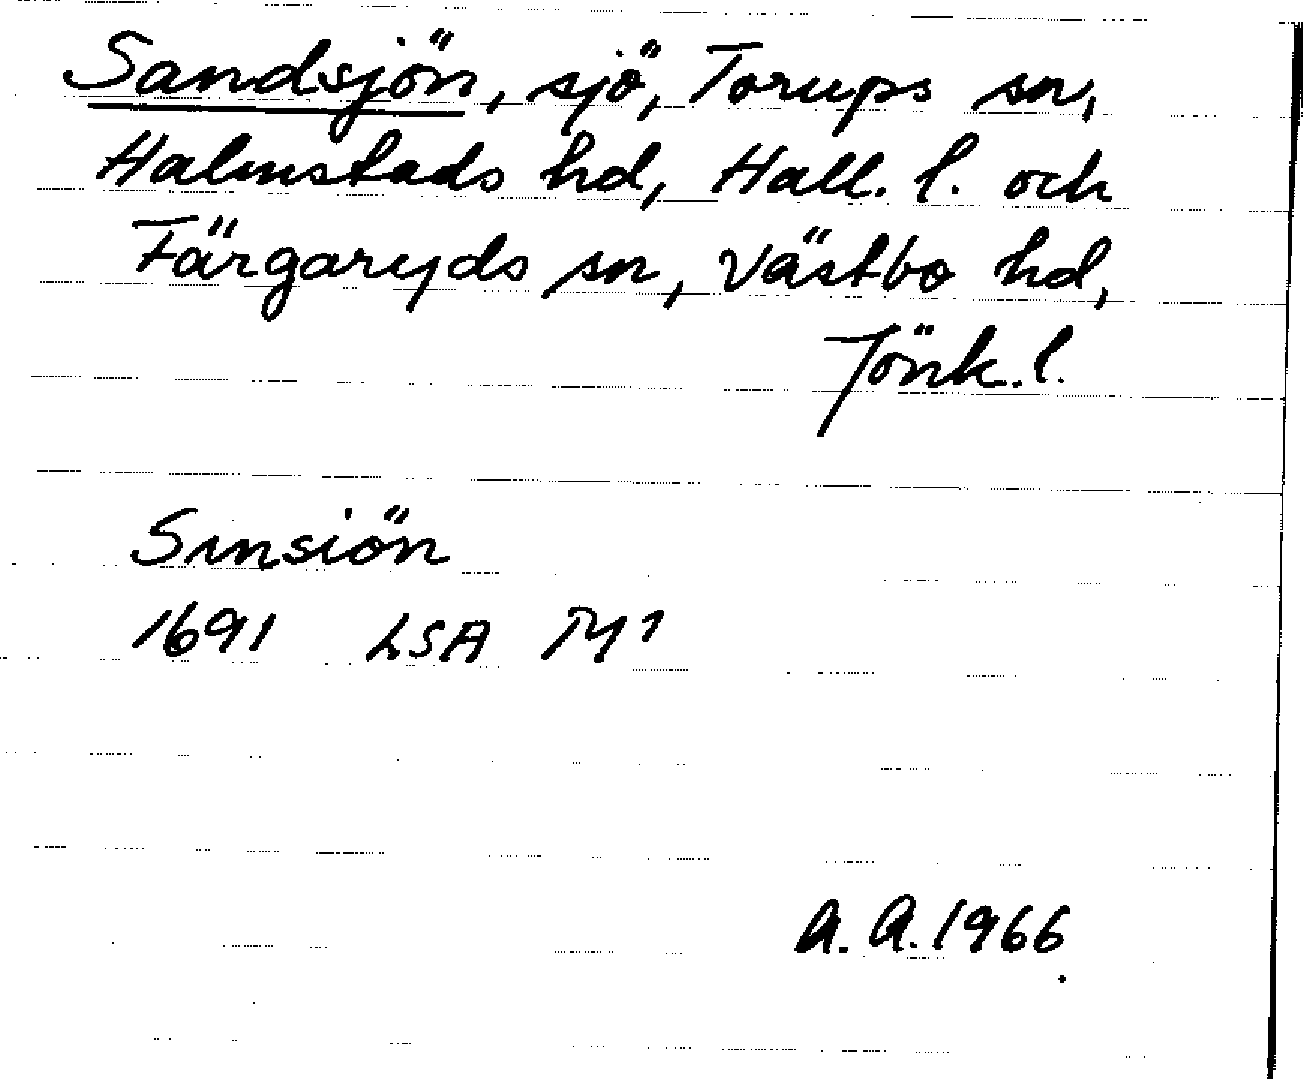 Sandsjön, sjö, Torups sn,
Halmstads hd, Hall. l. och
Färgaryds sn, Västbo hd,
Jönk. l.
Sinsiön
1691 LSA M1
A. A. 1966